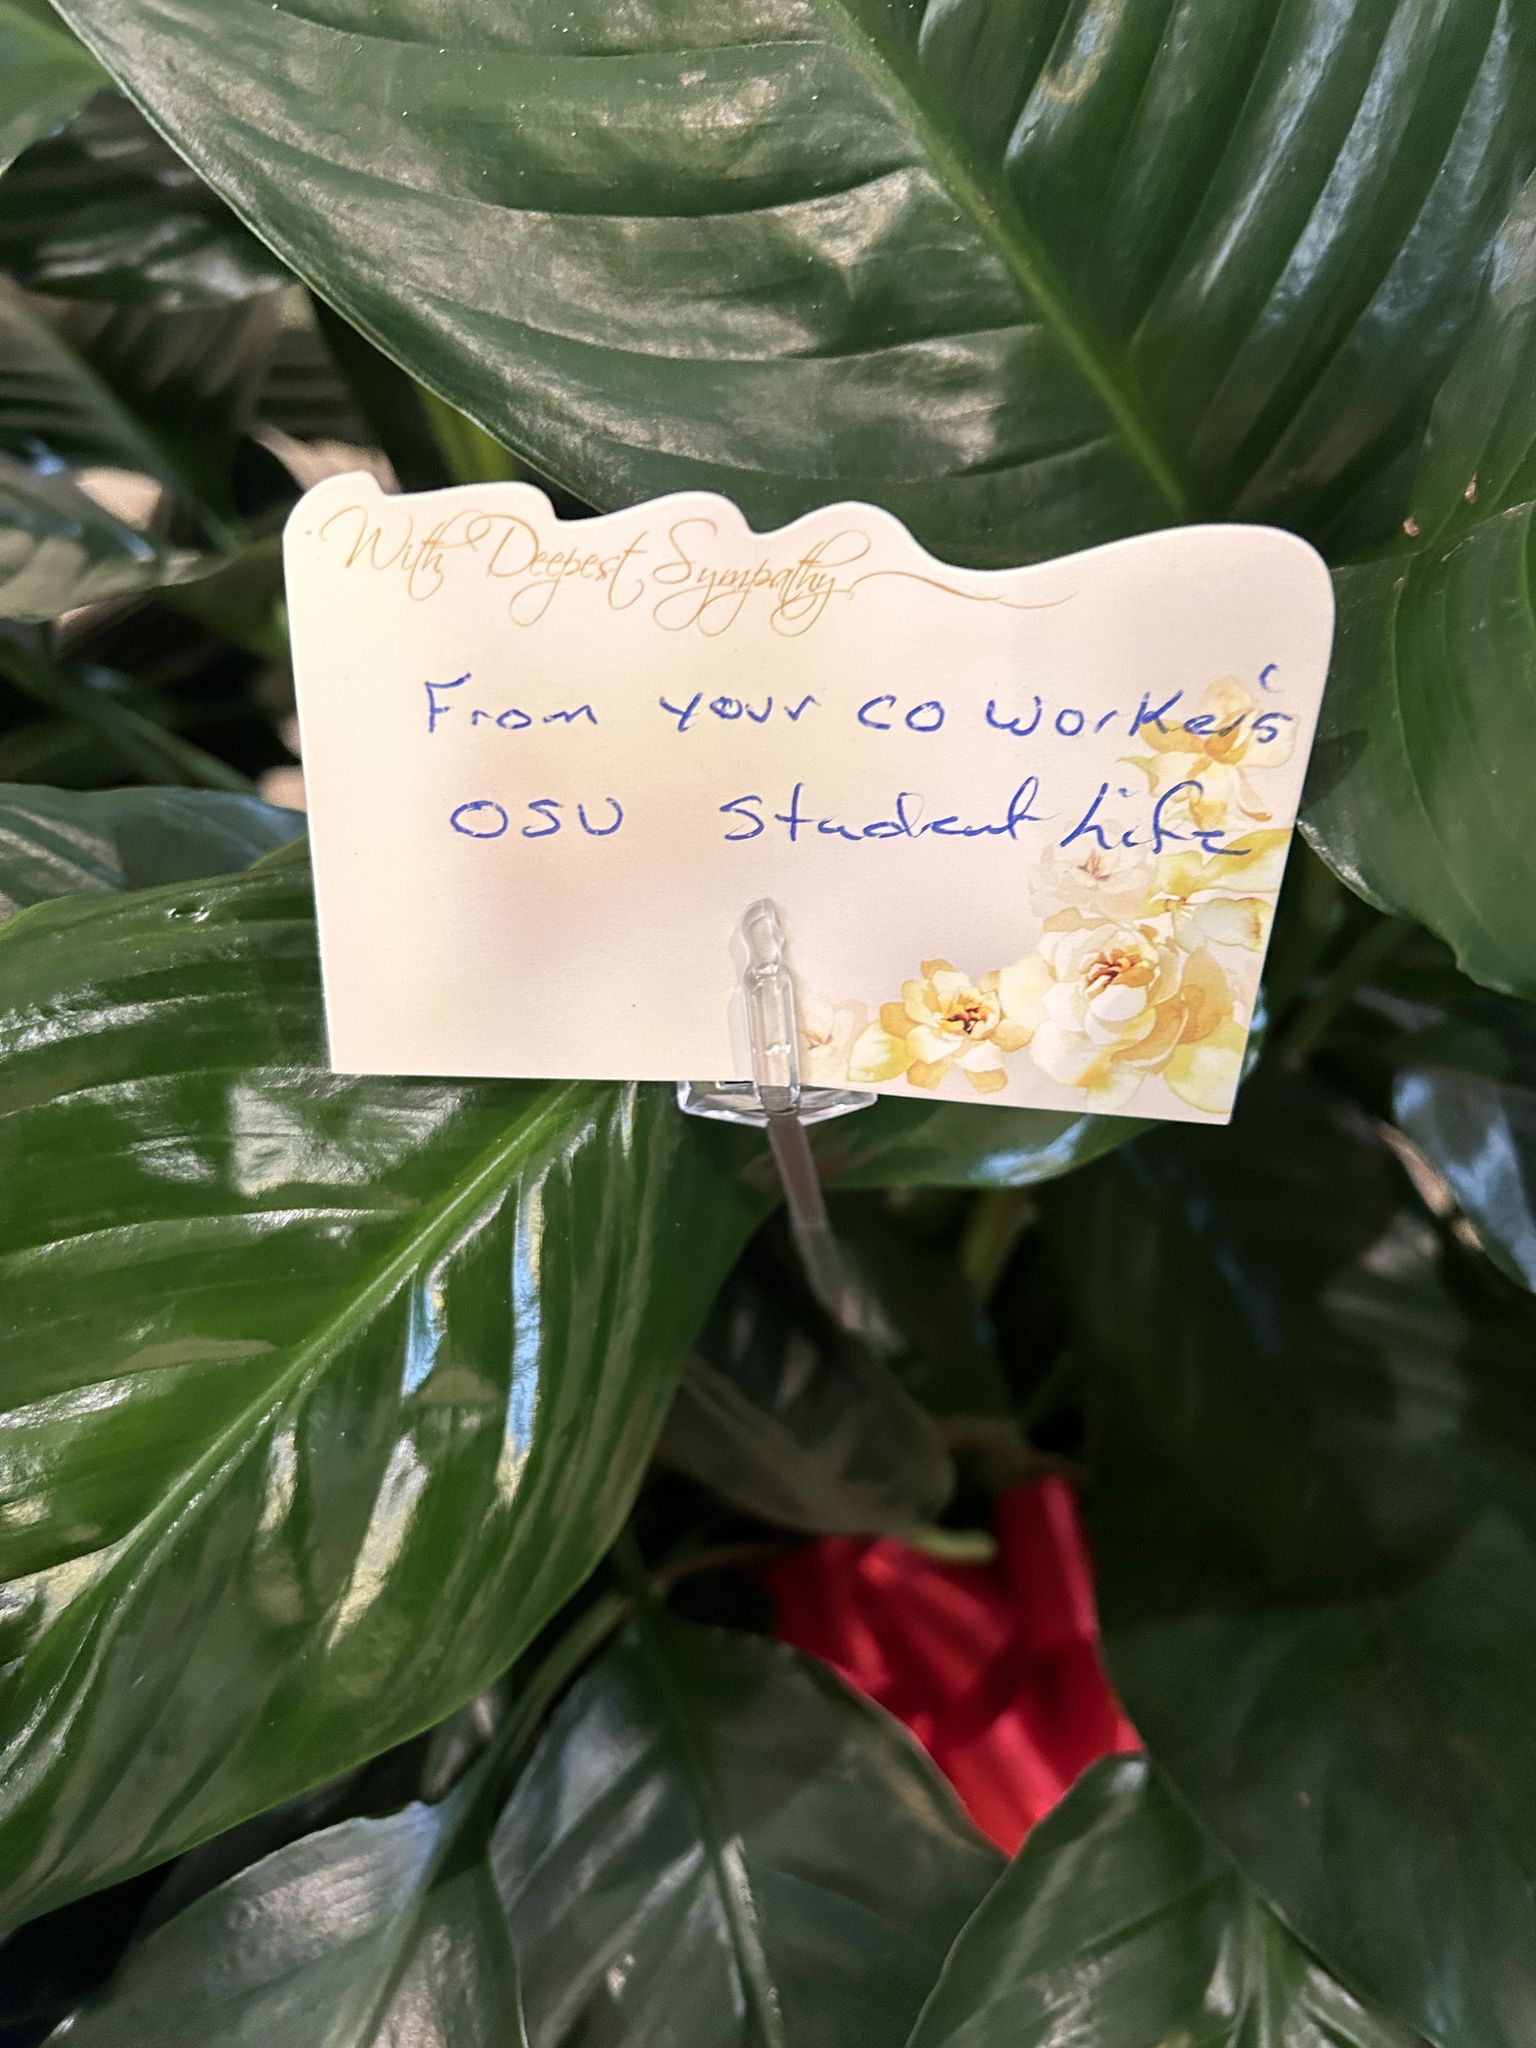 With Deepest Sympathy
From your co worker's
OSU Student Life